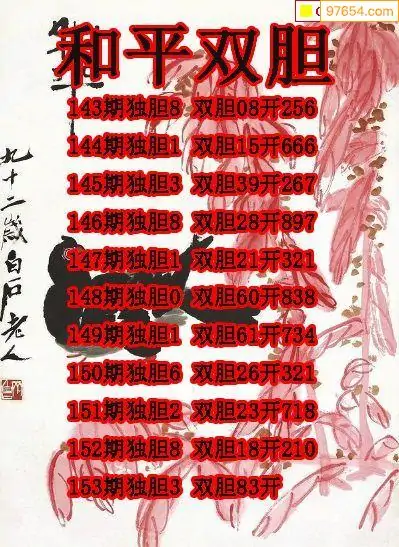 97654.com
和平双胆
143期独胆8 双胆08开256
144期独胆1 双胆15开666
145期独胆3 双胆39开267
146期独胆8 双胆28开897
147期独胆1 双胆21开321
148期独胆0 双胆60开838
149期独胆1 双胆61开734
150期独胆6 双胆26开321
151期独胆2 双胆23开718
152期独胆8 双胆18开210
153期独胆3 双胆83开
九十二岁白石老人